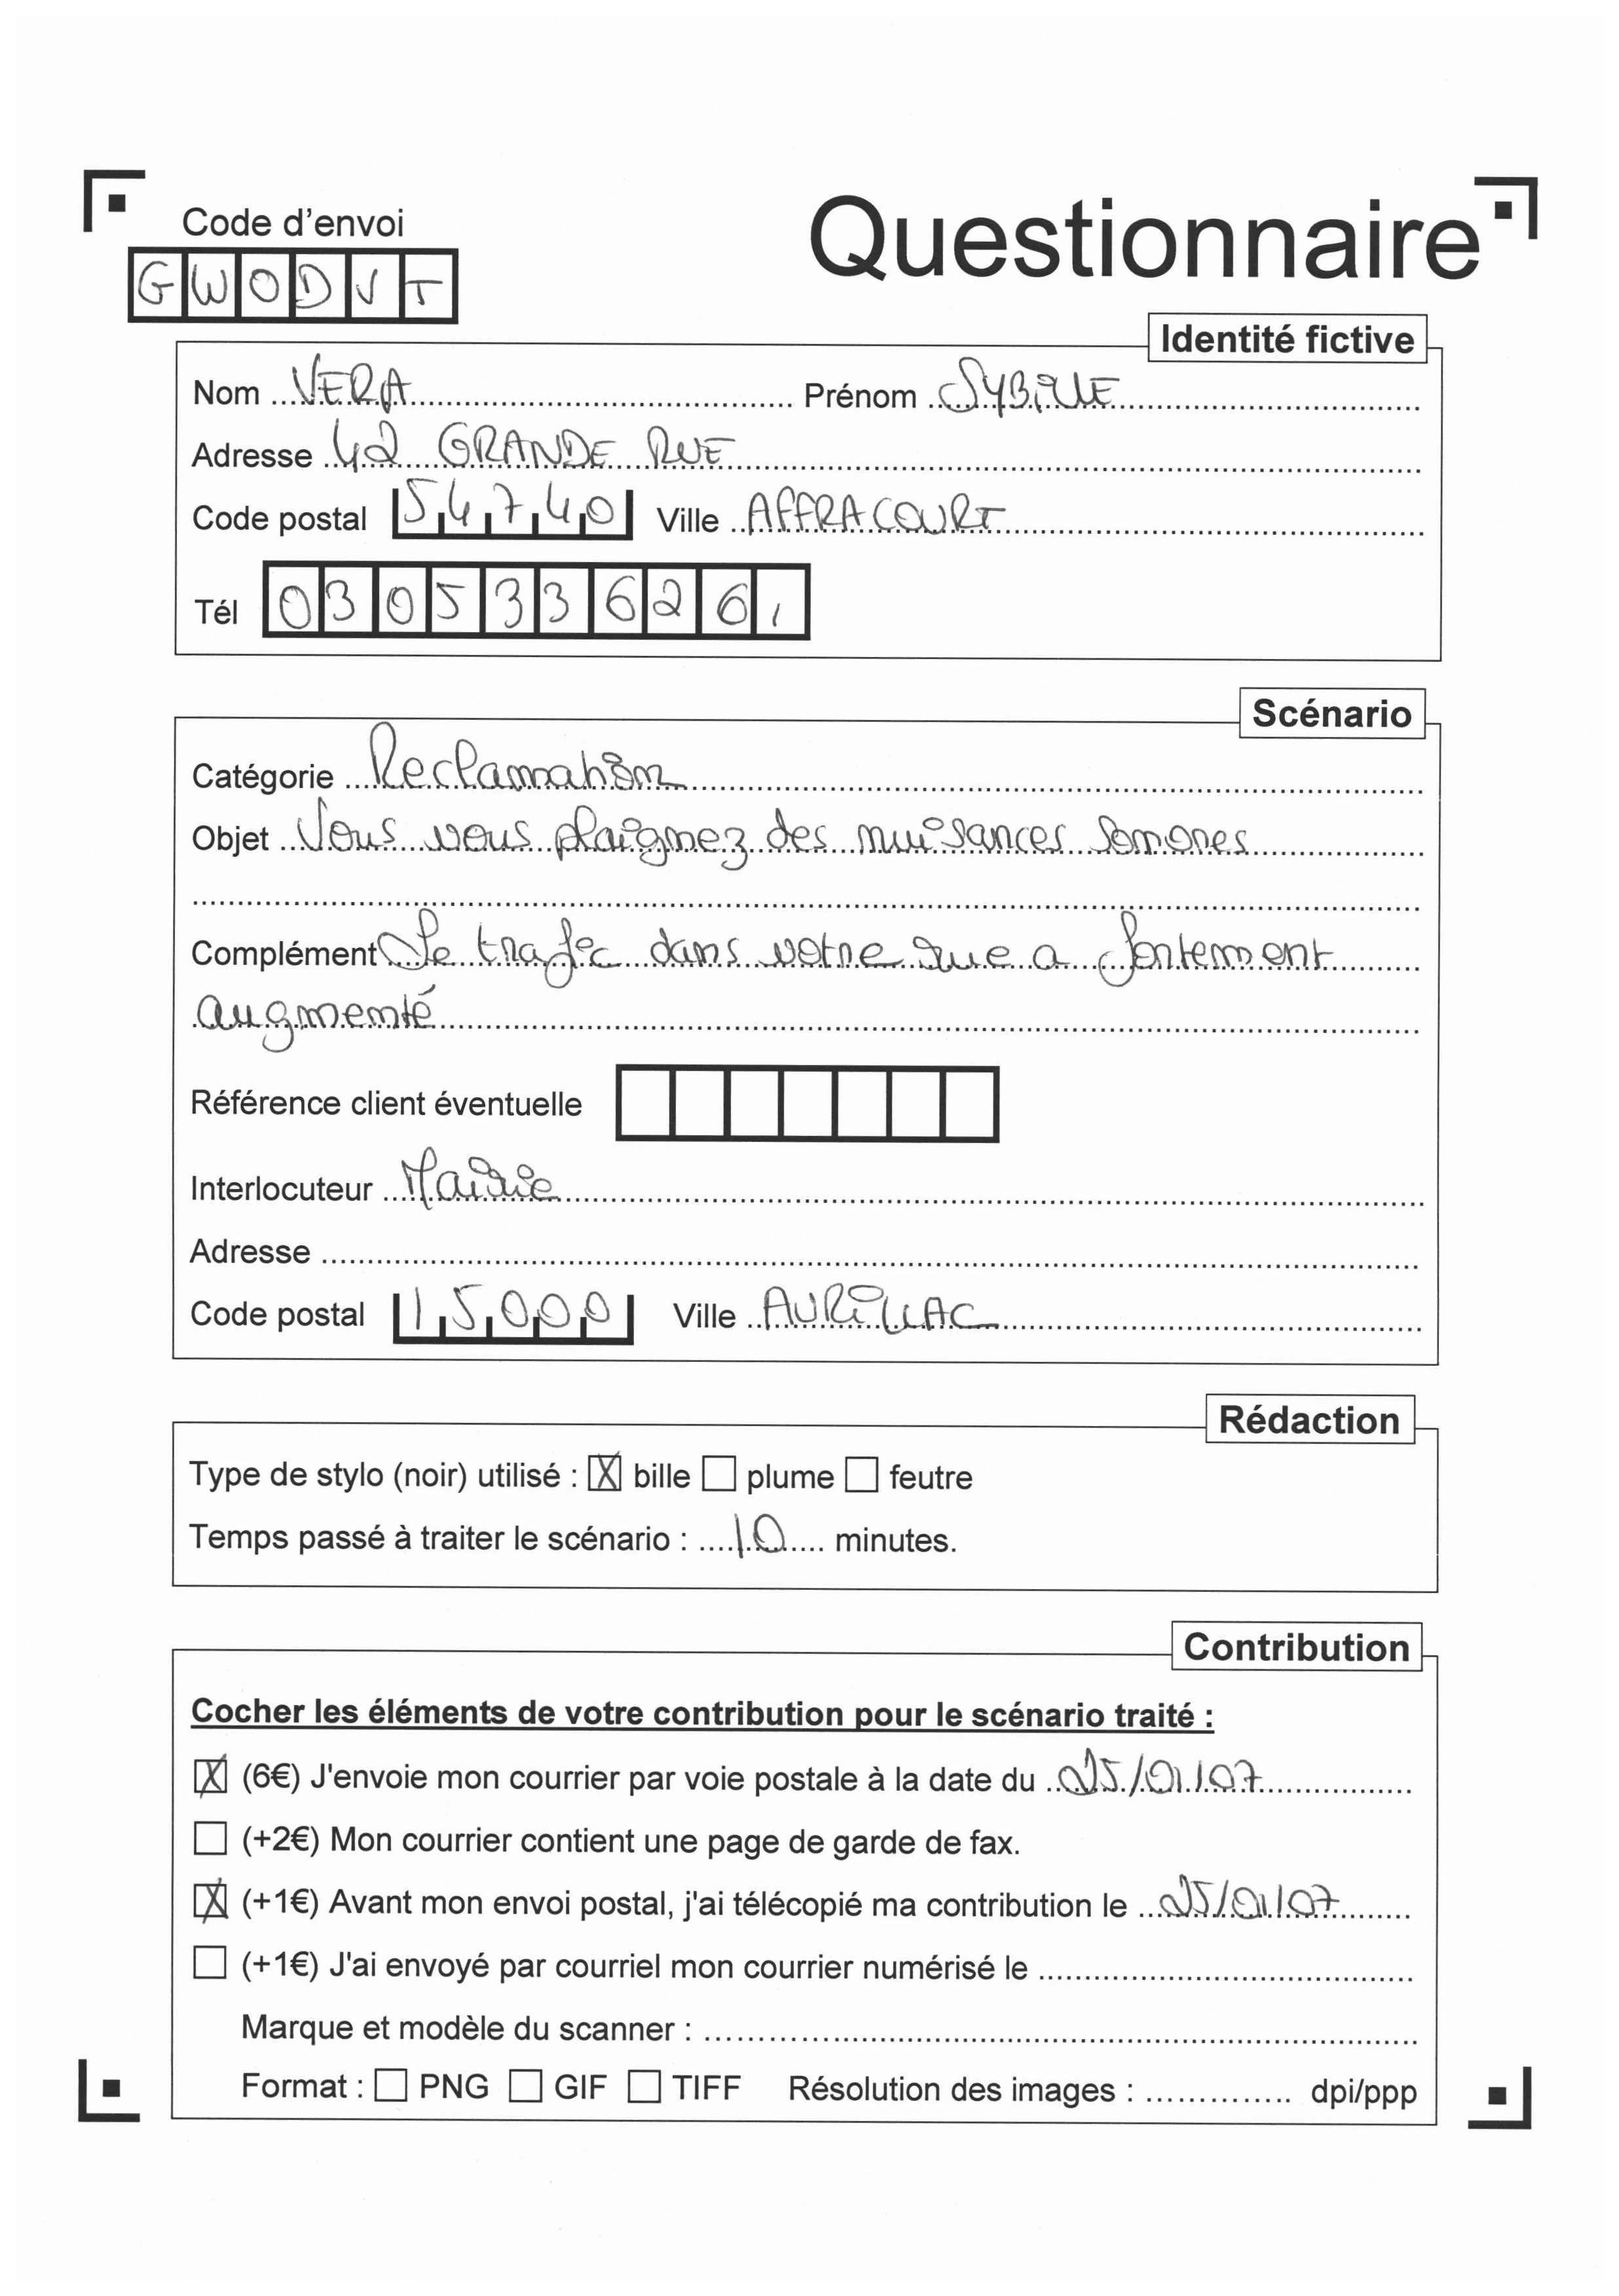 Code d'envoi
Questionnaire
GWODVT
Identité fictive
Nom VERA Prénom SYBILLE
Adresse 42 GRANDE RUE
Code postal 54740 Ville AFFRACOURT
Tél 0305336261
Scénario
Catégorie Reclamation
Objet Vous vous plaignez des nuisances sonores
Complément Le trafic dans votre rue a fortement
augmenté
Référence client éventuelle
Interlocuteur Mairie
Adresse
Code postal 15000 Ville AURILLAC
Rédaction
Type de stylo (noir) utilisé : X bille plume feutre
Temps passé à traiter le scénario : 10 minutes.
Contribution
Cocher les éléments de votre contribution pour le scénario traité :
X (6€) J'envoie mon courrier par voie postale à la date du 25/01/07
(+2€) Mon courrier contient une page de garde de fax.
X (+1€) Avant mon envoi postal, j'ai télécopié ma contribution le 25/01/07
(+1€) J'ai envoyé par courriel mon courrier numérisé le
Marque et modèle du scanner :
Format : PNG GIF TIFF Résolution des images : dpi/ppp